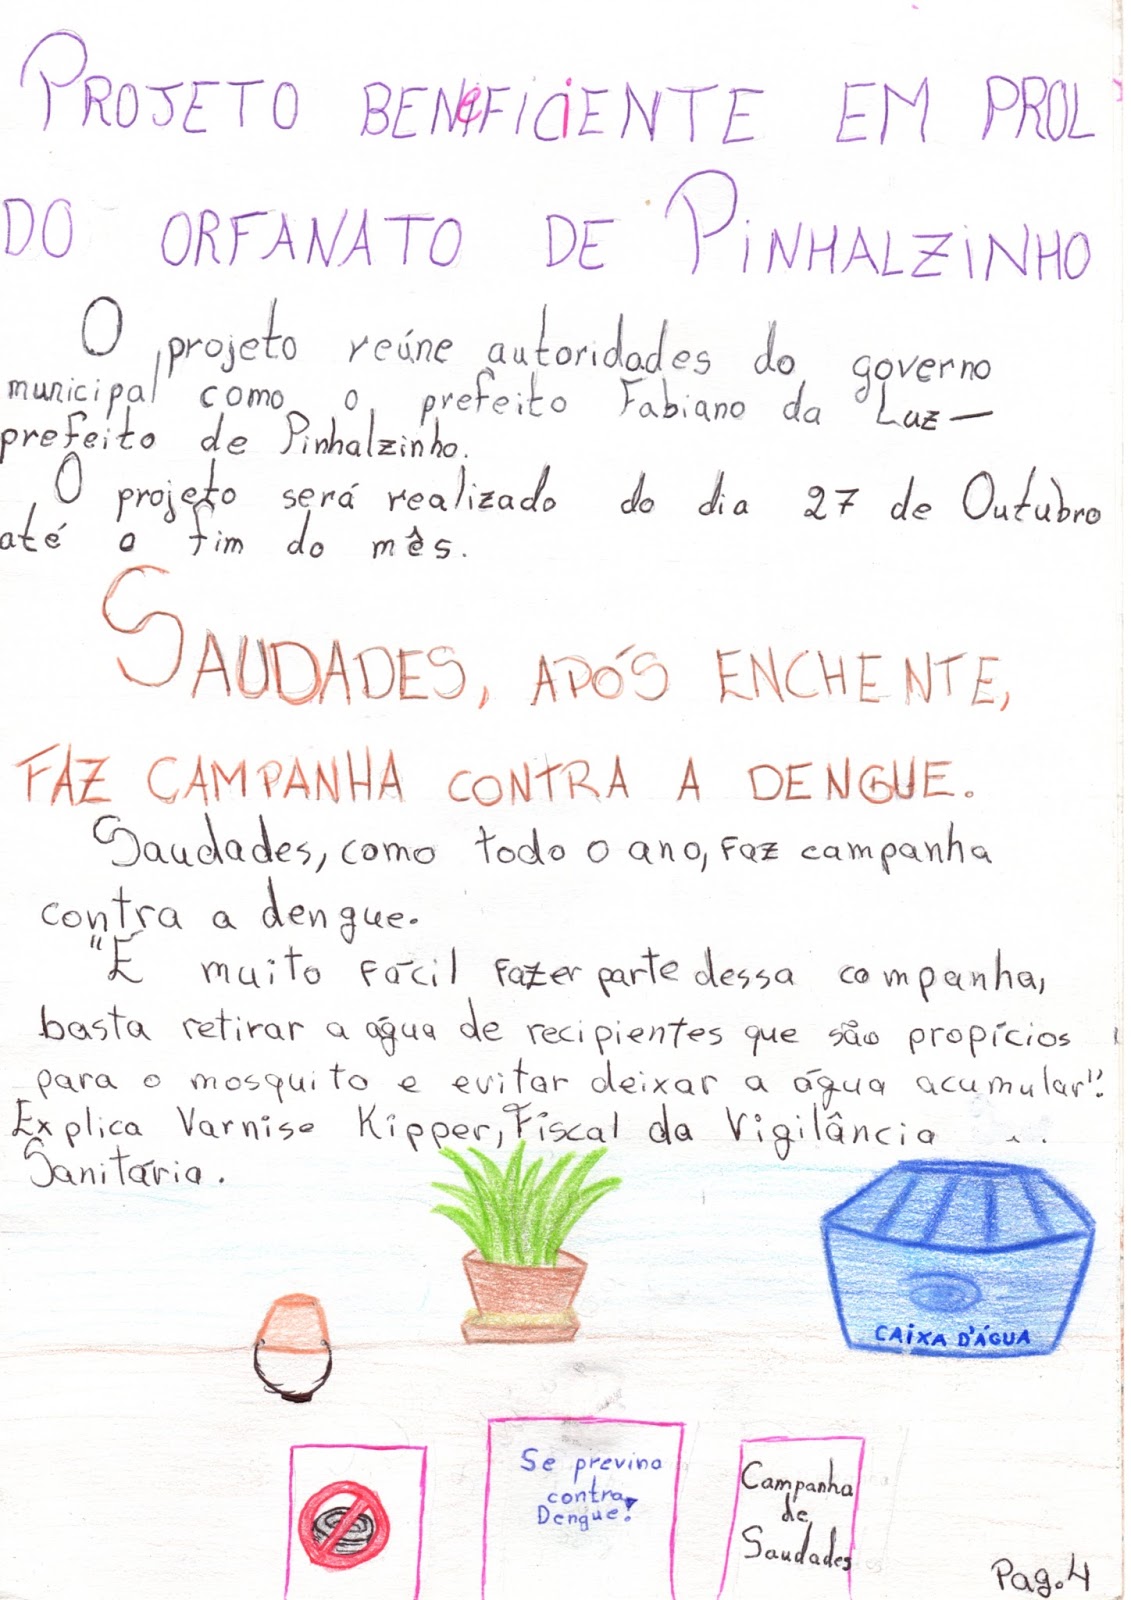 PROJETO BENEFICIENTE EM PROL
DO ORFANATO DE PINHALZINHO
O projeto reúne autoridades do governo
municipal como o prefeito Fabiano da Luz—
prefeito de Pinhalzinho.
O projeto será realizado do dia 27 de Outubro
até o fim do mês.
SAUDADES, APÓS ENCHENTE,
FAZ CAMPANHA CONTRA A DENGUE.
Saudades, como todo o ano, Faz campanha
contra a dengue.
"É muito Fácil Fazer parte dessa companha,
basta retirar a água de recipientes que são propícios
para o mosquito e evitar deixar a água acumular".
Explica Varnise Kipper, Fiscal da Vigilância
Sanitária.
CAIXA D'ÁGUA
Se previna
contra
Dengue!
Campanha
de
Saudades
Pag.4